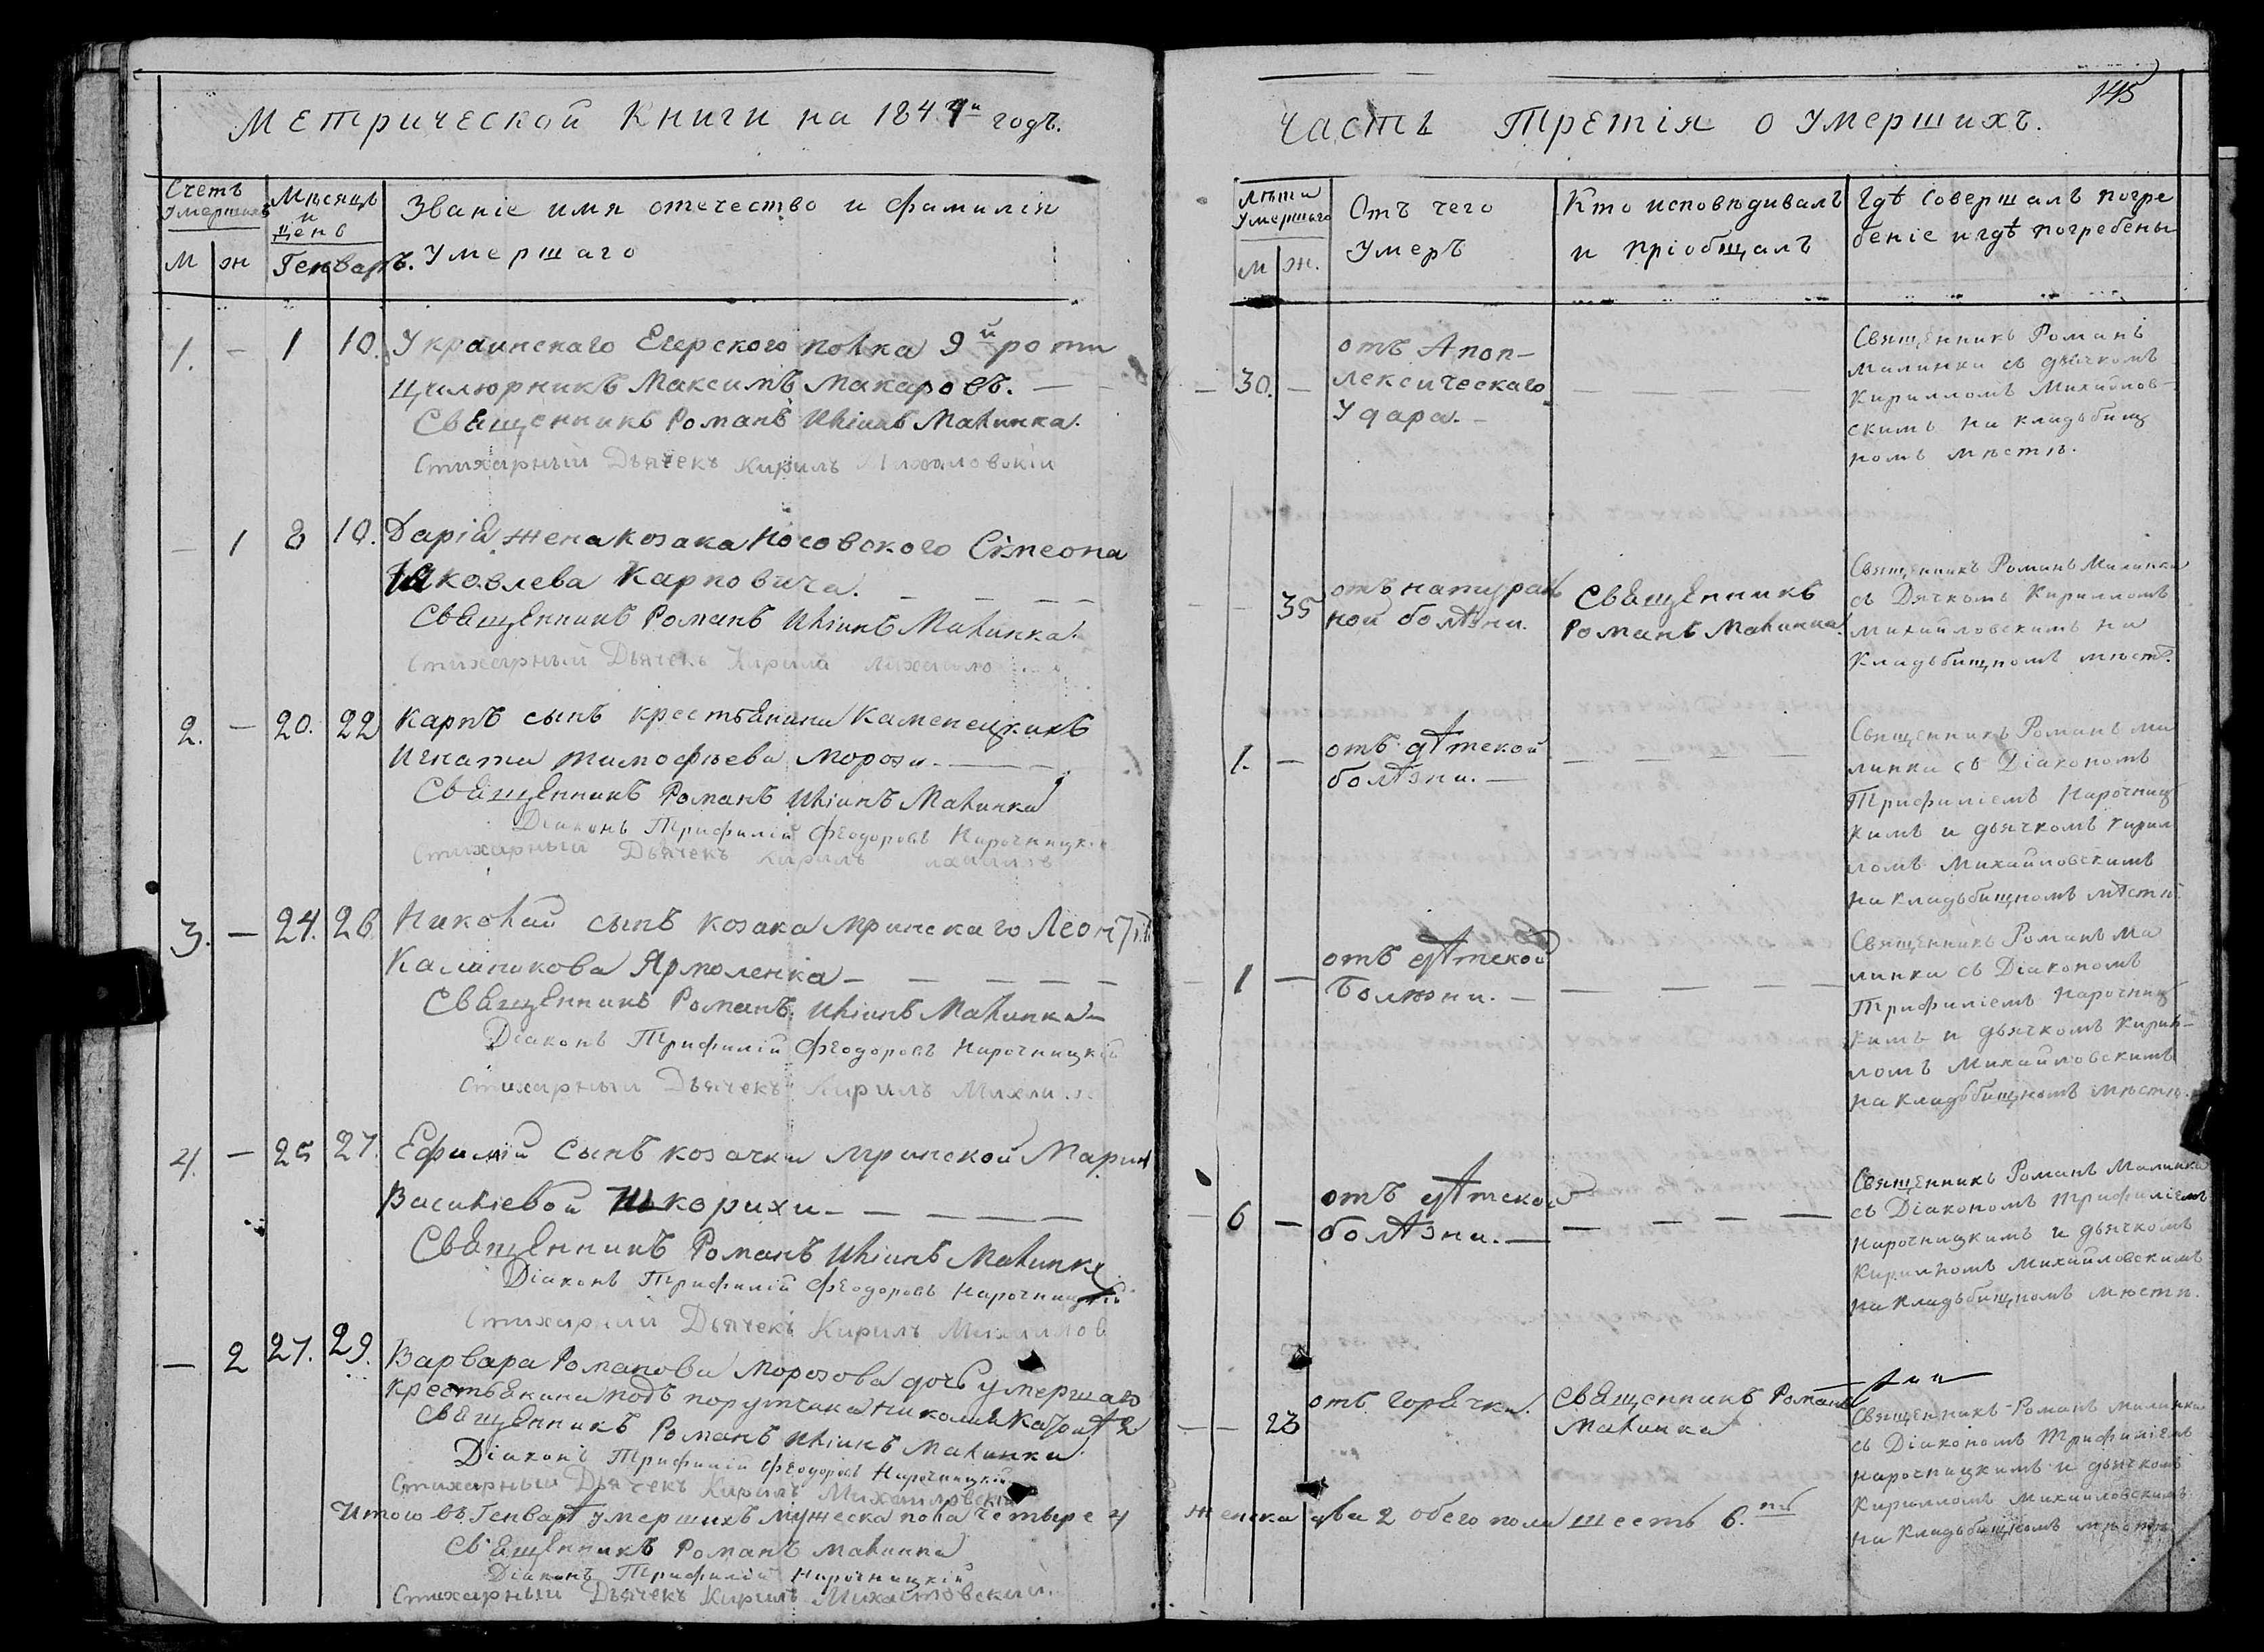 Метрической Книги на 1844й годъ.
Счетъ умершихъ
М
ж
Мѣсяцъ и день
Генварь.
Званіе имя отечество и фамилія
умершаго
1. — 1 10. Украинскаго Егерского полка 9й роты
Цилюрникъ Максимъ Макаровъ. —
Священникъ Романъ Иліинъ Малинка.
Стихарный Дьячекъ Кирилъ Михайловскій
— 1 8 10. Дарія жена козака Носовского Симеона
Яковлева Карповича. — — —
Священникъ Романъ Иліинъ Малинка.
Стихарный Дьячекъ Кирилъ
2. — 20. 22 Карпъ сынъ крестьянина Каменецкихъ
Игната Тимофѣева Мороза. —
Священникъ Романъ Иліинъ Малинка
Діаконъ Трифилій Феодоровъ Нарочницк
Стихарный Дьячекъ Кирилъ
3. — 24. 26. Николай сынъ козака Мринскаго Леонтія
Калиникова Ярмоленка — — — —
Священникъ Романъ Иліинъ Малинка
Діаконъ Трифилій Феодоровъ Нарочницкій
Стихарный Дьячекъ Кирилъ
4. — 25 27. Ефимій сынъ козачки Мринской Марии
Василіевой Шкорихи — — — —
Священникъ Романъ Иліинъ Малинка
Діаконъ Трифилій Феодоровъ Нарочницкій
Стихарный Дьячекъ Кирилъ Михайлов
— 2 27. 29. Варвара Романова Морозова дочь умершаго
крестьянина подъ порутчика Николая
Священникъ Романъ Иліинъ Малинка
Діаконъ Трифилій Феодоровъ Нарочницкій
Стихарный Дьячекъ Кирилъ Михайловскій
Итого въ Генварѣ умершихъ мужеска пола четыре 4
Священникъ Романъ Малинка
Діаконъ Трифилій Нарочницкій
Стихарный Дьячекъ Кирилъ Михайловский.
145
Часть Третія о умершихъ.
лѣта умершаго
м
ж.
Отъ чего
умеръ
Кто исповѣдивалъ
и пріобщалъ
Гдѣ совершалъ погре
беніе и гдѣ погребены
— 30. —
отъ Апоп-
лексическаго
удара. —
Священникъ Романъ
Малинка съ дьячкомъ
Кирилломъ Михайлов-
скимъ на кладьбищ
номъ мѣстѣ.
— — 35
отъ натурал
ной болѣзни.
Священникъ
Романъ Малинка.
Священникъ Романъ Малинка
съ Дячкомъ Кирилломъ
Михайловскимъ на
Кладьбищномъ мѣстѣ.
1. —
отъ дѣтской
болѣзни. —
Священникъ Романъ Ма
линка съ Діакономъ
Трифиліемъ Нарочниц
кимъ и дьячкомъ Кирил
ломъ Михайловскимъ
на кладьбищномъ мѣстѣ.
— 1 —
отъ дѣтской
болѣзни. —
Священникъ Романъ Ма
линка съ Діакономъ
Трифиліемъ Нарочниц
кимъ и дьячкомъ Кирил-
ломъ Михайловскимъ
на кладьбищномъ мѣстѣ.
— 6 —
отъ дѣтской
болѣзни. —
Священникъ Романъ Малинка
съ Діакономъ Трифиліемъ
Нарочницкимъ и дьячкомъ
Кирилломъ Михайловскимъ
на кладьбищномъ мѣстѣ.
— — 23
отъ горячки.
Священникъ Романъ
Малинка
Священникъ Романъ Малинка
съ Діакономъ Трифиліемъ
Нарочницкимъ и дьячкомъ
Кирилломъ Михайловскимъ
на кладьбищномъ мѣстѣ
женска два 2 обего пола шесть 6.